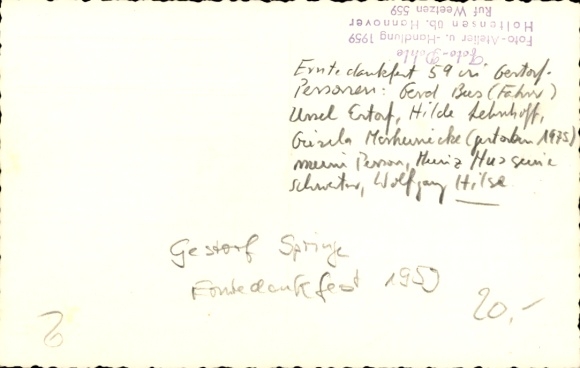 Foto-Pohle
Foto-Atelier u. -Handlung 1959
Holtensen üb. Hannover
Ruf Weetzen 559
Erntedankfest 59 in Gestorf.
Personen: Gerd Bus (Fahrer)
Ursel Hilde Lehnhoff,
Gisela (gestorben 1975)
meine Person, Heinz
Schwester, Wolfgang Hilse
Gestorf Springe
Erntedankfest 1959
20,-